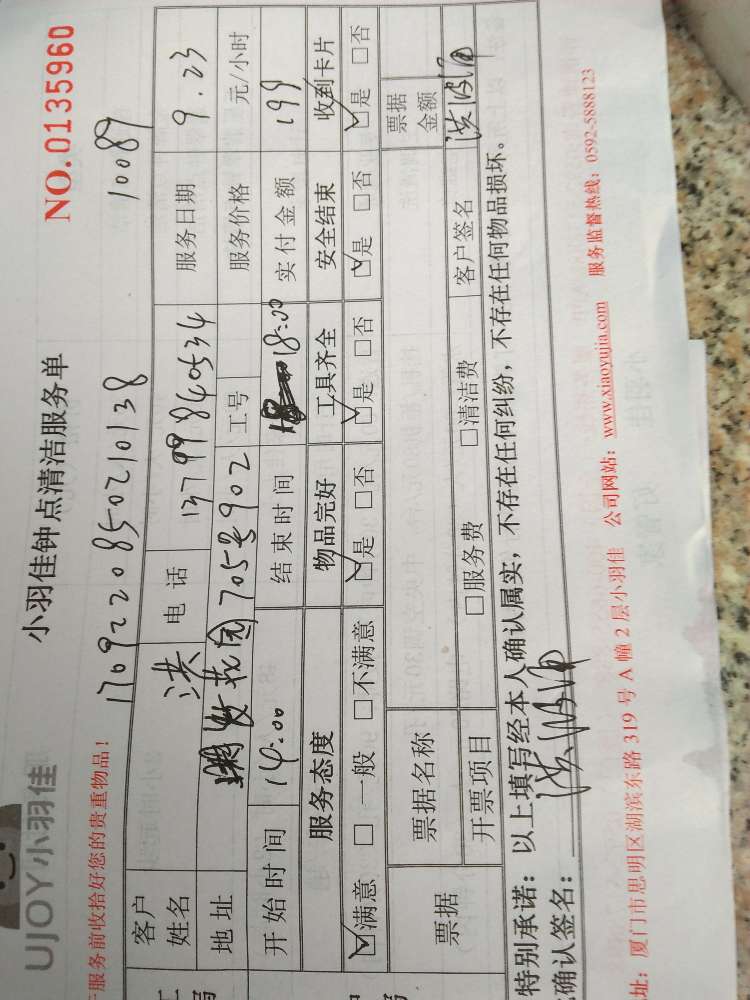 UJOY小羽佳
小羽佳钟点清洁服务单
NO.0135960
服务前收拾好您的贵重物品！
170922085021 0138
10089
客户姓名 洪 电话 13799840534 服务日期 9.23
地址 花园705号902 工号 服务价格 元/小时
开始时间 14:00 结束时间 18:00 实付金额 199
服务态度 物品完好 工具齐全 安全结束 收到卡片
☑满意 □一般 □不满意 ☑是 □否 ☑是 □否 ☑是 □否 ☑是 □否
票据 票据名称 票据金额
开票项目 □服务费 □清洁费 客户签名
特别承诺：以上填写经本人确认属实，不存在任何纠纷，不存在任何物品损坏。
确认签名：
址：厦门市思明区湖滨东路 319 号 A 幢 2 层小羽佳 公司网站：www.xiaoyujia.com 服务监督热线：0592-5888123